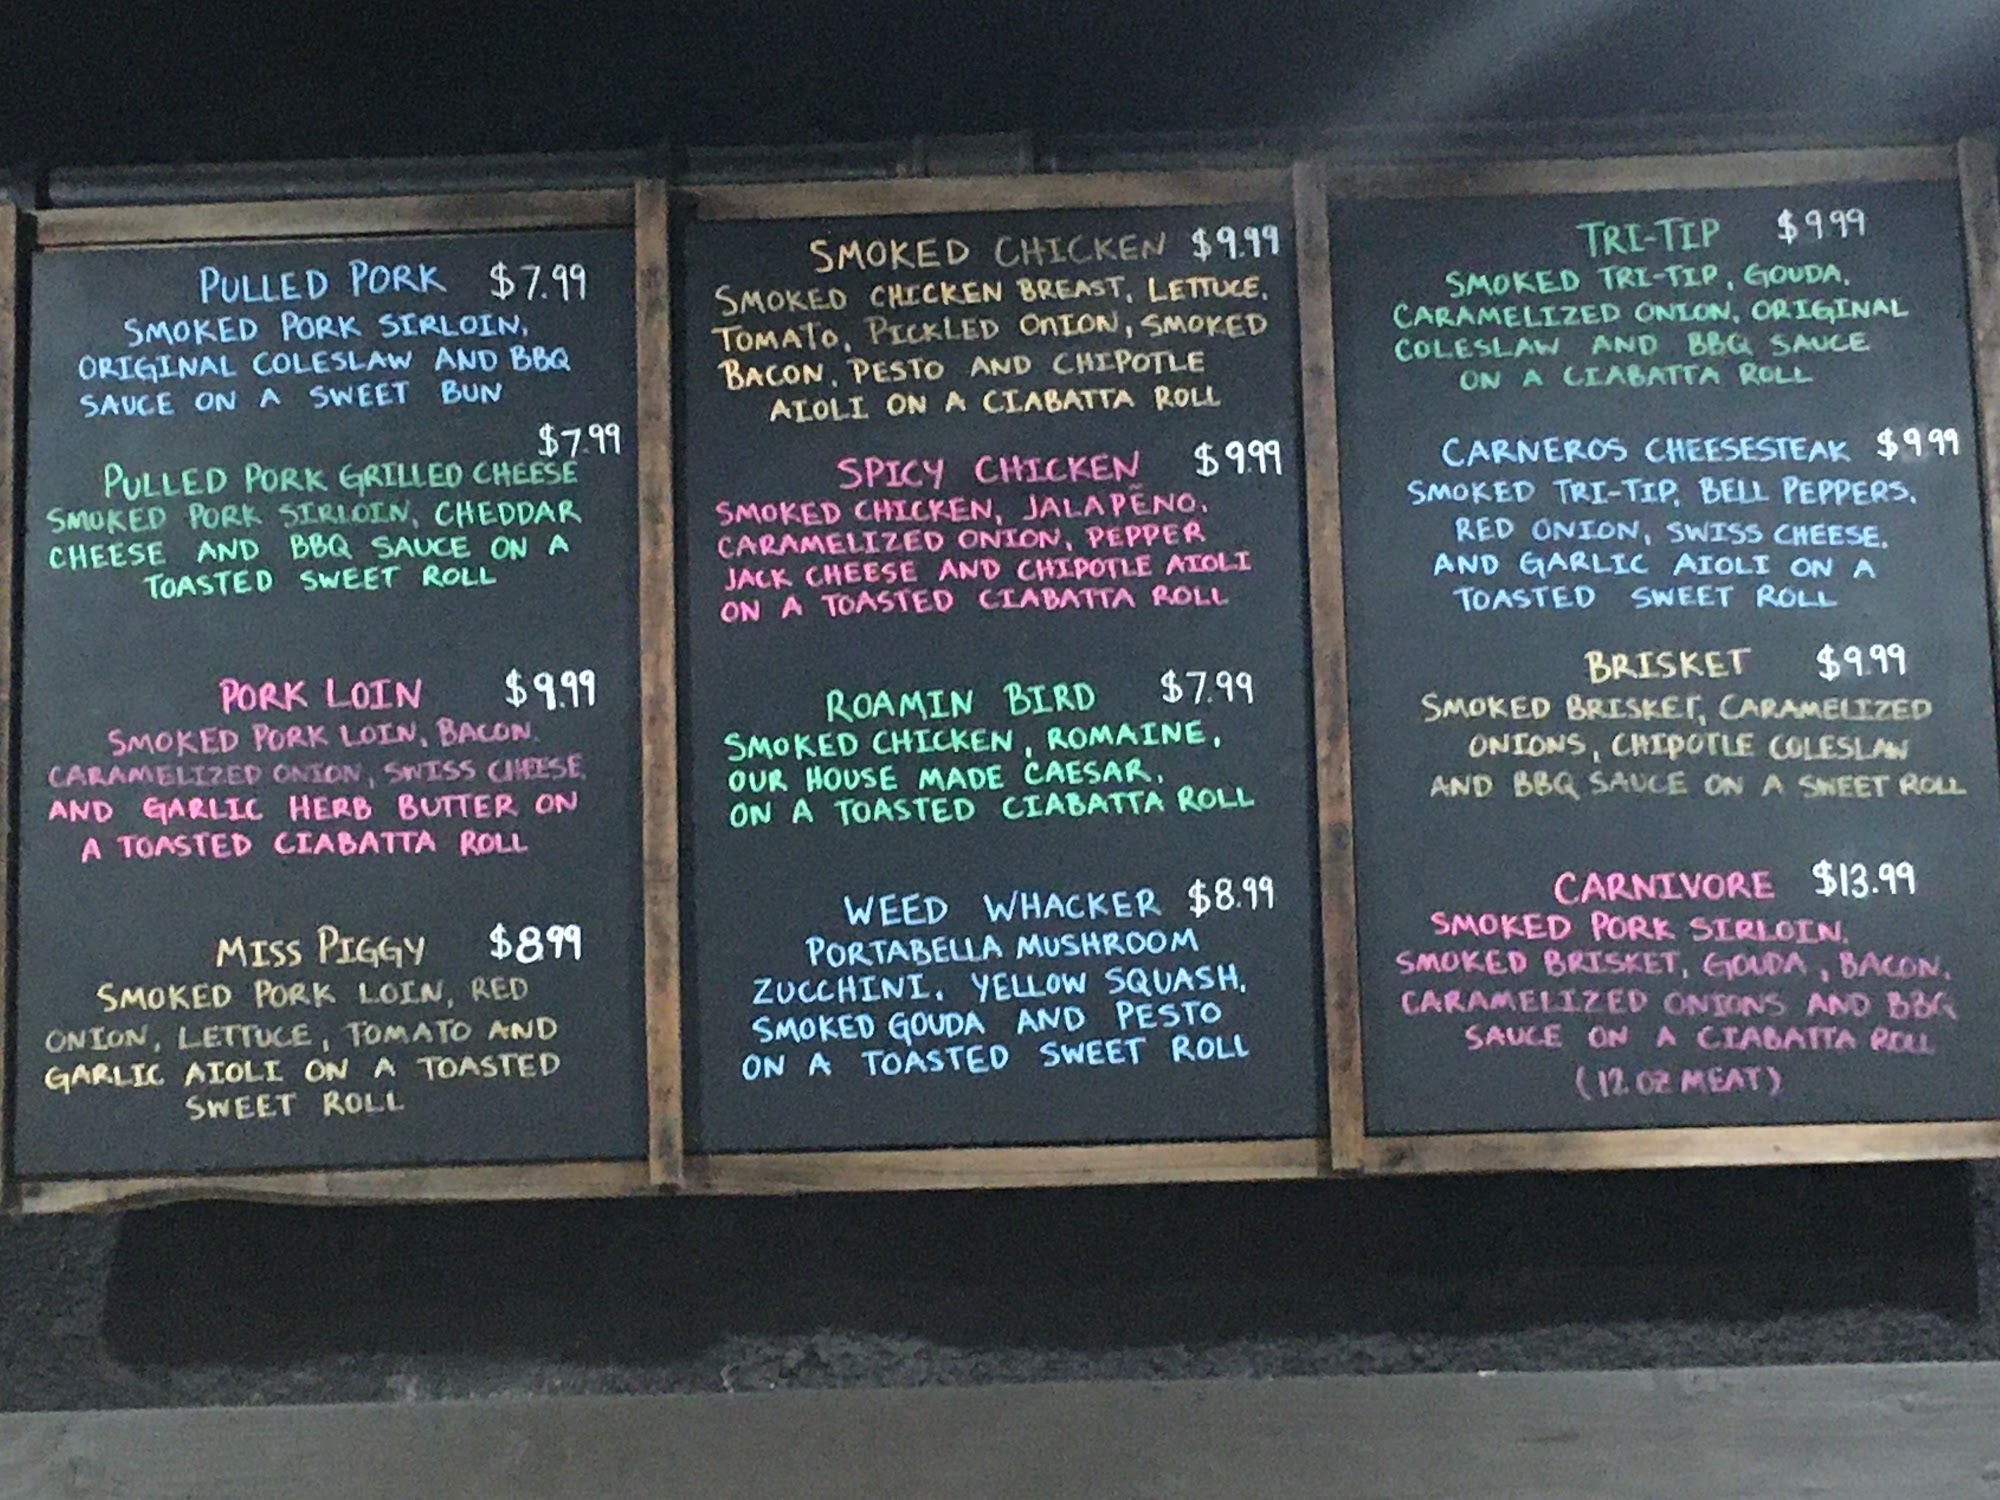 PULLED PORK $7.99
SMOKED PORK SIRLOIN,
ORIGINAL COLESLAW AND BBQ
SAUCE ON A SWEET BUN
$7.99
PULLED PORK GRILLED CHEESE
SMOKED PORK SIRLOIN, CHEDDAR
CHEESE AND BBQ SAUCE ON A
TOASTED SWEET ROLL
PORK LOIN $9.99
SMOKED PORK LOIN, BACON,
CARAMELIZED ONION, SWISS CHEESE,
AND GARLIC HERB BUTTER ON
A TOASTED CIABATTA ROLL
MISS PIGGY $8.99
SMOKED PORK LOIN, RED
ONION, LETTUCE, TOMATO AND
GARLIC AIOLI ON A TOASTED
SWEET ROLL
SMOKED CHICKEN $9.99
SMOKED CHICKEN BREAST, LETTUCE,
TOMATO, PICKLED ONION, SMOKED
BACON, PESTO AND CHIPOTLE
AIOLI ON A CIABATTA ROLL
SPICY CHICKEN $9.99
SMOKED CHICKEN, JALAPEÑO,
CARAMELIZED ONION, PEPPER
JACK CHEESE AND CHIPOTLE AIOLI
ON A TOASTED CIABATTA ROLL
ROAMIN BIRD $7.99
SMOKED CHICKEN, ROMAINE,
OUR HOUSE MADE CAESAR,
ON A TOASTED CIABATTA ROLL
WEED WHACKER $8.99
PORTABELLA MUSHROOM
ZUCCHINI, YELLOW SQUASH,
SMOKED GOUDA AND PESTO
ON A TOASTED SWEET ROLL
TRI-TIP $9.99
SMOKED TRI-TIP, GOUDA,
CARAMELIZED ONION, ORIGINAL
COLESLAW AND BBQ SAUCE
ON A CIABATTA ROLL
CARNEROS CHEESESTEAK $9.99
SMOKED TRI-TIP, BELL PEPPERS,
RED ONION, SWISS CHEESE,
AND GARLIC AIOLI ON A
TOASTED SWEET ROLL
BRISKET $9.99
SMOKED BRISKET, CARAMELIZED
ONIONS, CHIPOTLE COLESLAW
AND BBQ SAUCE ON A SWEET ROLL
CARNIVORE $13.99
SMOKED PORK SIRLOIN,
SMOKED BRISKET, GOUDA, BACON,
CARAMELIZED ONIONS AND BBQ
SAUCE ON A CIABATTA ROLL
(12 OZ MEAT)